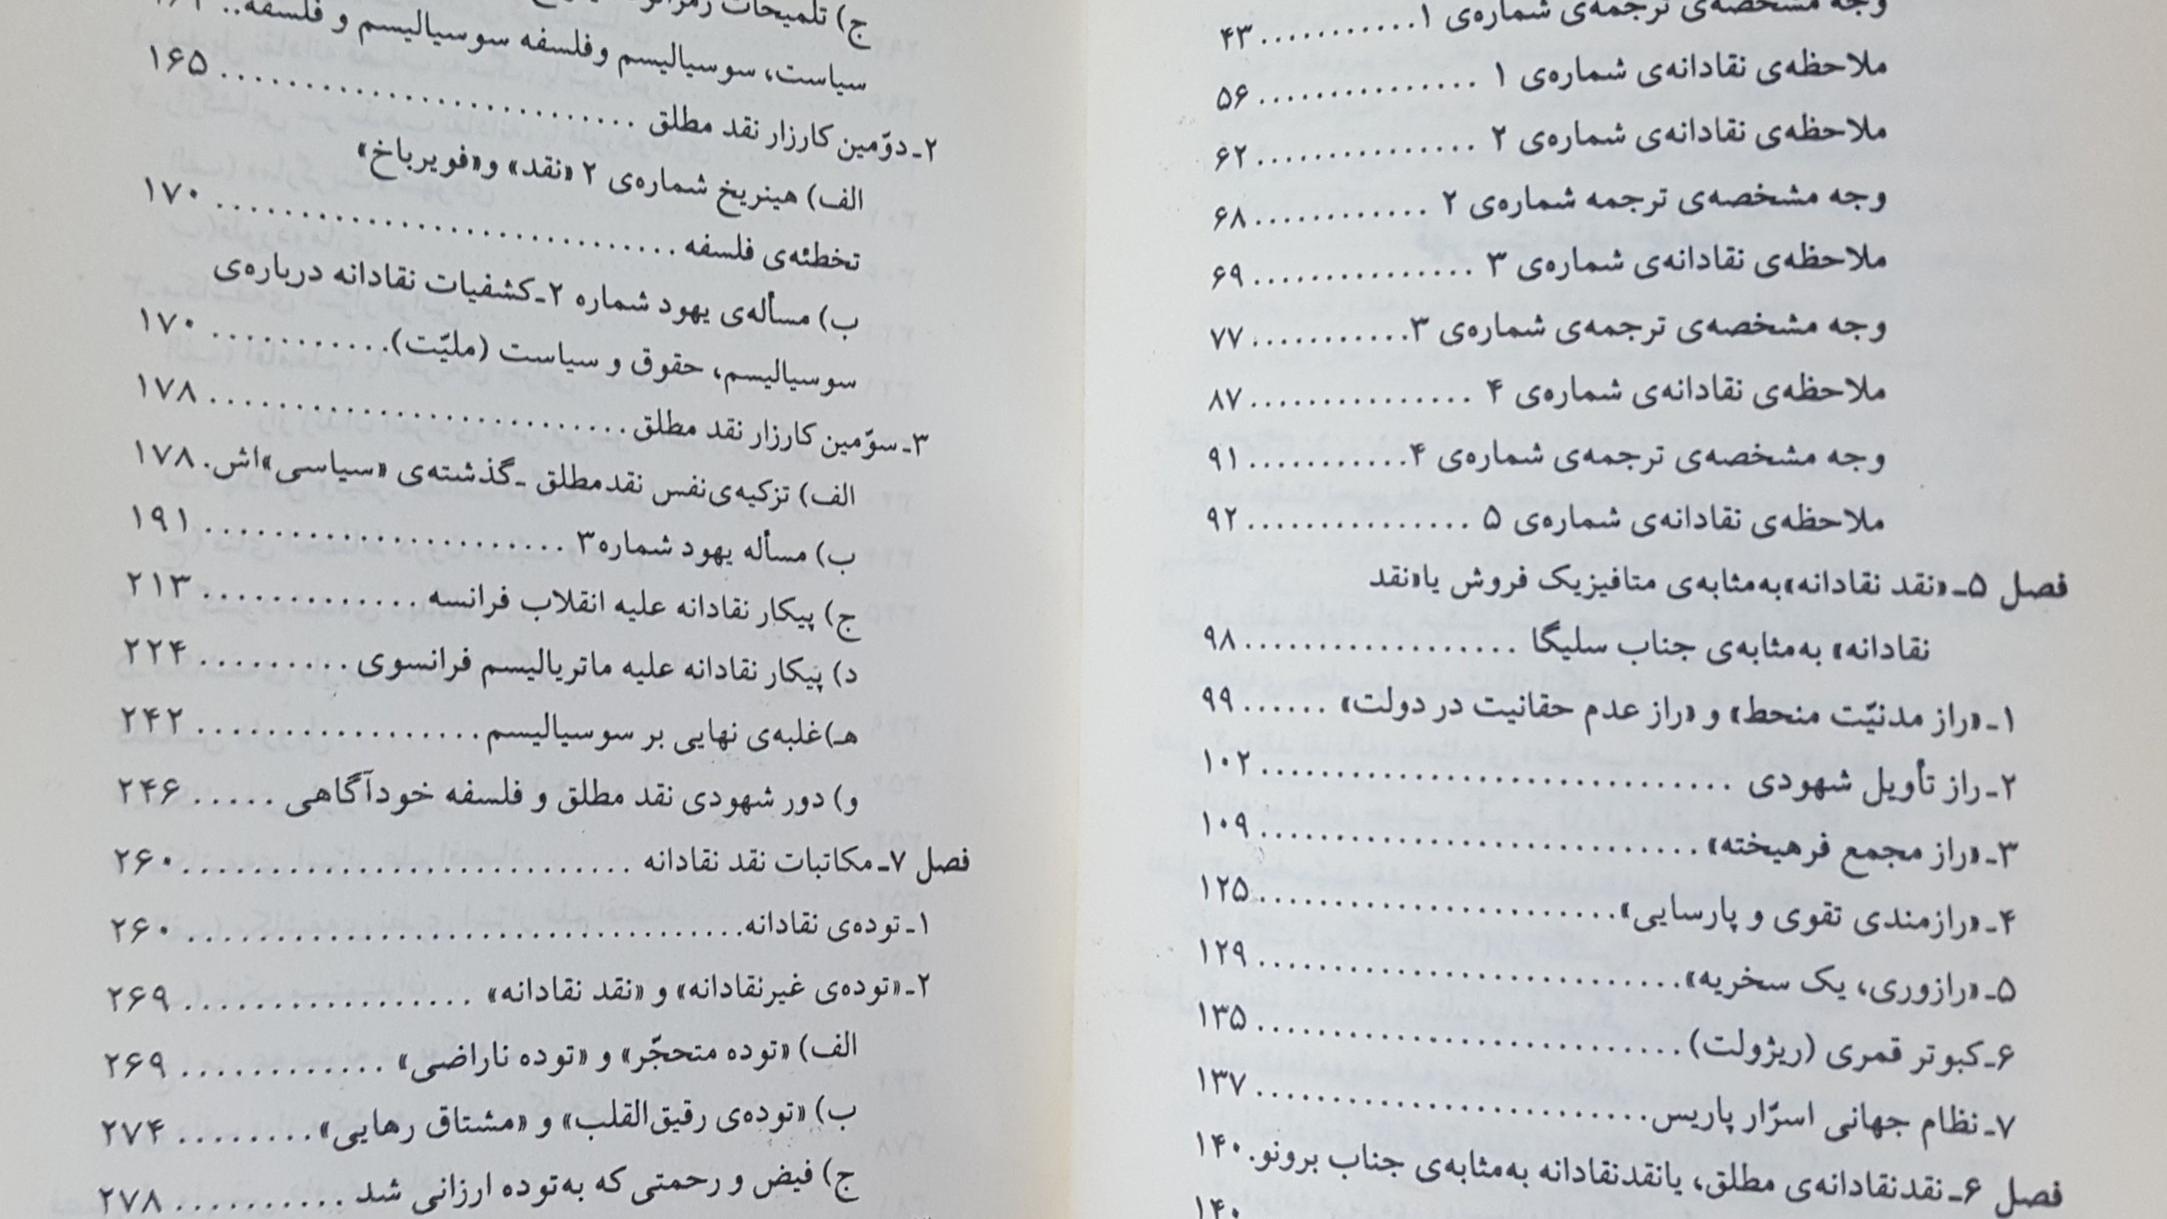 وجه مشخصه‌ی ترجمه‌ی شماره‌ی ۱............۴۳
ملاحظه‌ی نقادانه‌ی شماره‌ی ۱ ................ ۵۶
ملاحظه‌ی نقادانه‌ی شماره‌ی ۲ ................ ۶۲
وجه مشخصه‌ی ترجمه شماره‌ی ۲ ............. ۶۸
ملاحظه‌ی نقادانه‌ی شماره‌ی ۳ ................ ۶۹
وجه مشخصه‌ی ترجمه‌ی شماره‌ی ۳............ ۷۷
ملاحظه‌ی نقادانه‌ی شماره‌ی ۴ ................ ۸۷
وجه مشخصه‌ی ترجمه‌ی شماره‌ی ۴............ ۹۱
ملاحظه‌ی نقادانه‌ی شماره‌ی ۵ ................ ۹۲
فصل ۵ـ «نقد نقادانه»به‌مثابه‌ی متافیزیک فروش یا«نقد
نقادانه» به‌مثابه‌ی جناب سلیگا ....................۹۸
۱ـ «راز مدنیّت منحط» و «راز عدم حقانیت در دولت» ...... ۹۹
۲ـ راز تأویل شهودی .................................. ۱۰۲
۳ـ «راز مجمع فرهیخته» ............................... ۱۰۹
۴ـ «رازمندی تقوی و پارسایی»......................... ۱۲۵
۵ـ «رازوری، یک سخریه».............................. ۱۲۹
۶ـ کبوتر قمری (ریژولت) .............................. ۱۳۵
۷ـ نظام جهانی اسرّار پاریس............................ ۱۳۷
فصل ۶ـ نقدنقادانه‌ی مطلق، یانقدنقادانه به‌مثابه‌ی جناب برونو. ۱۴۰
۱۴۰
ج) تلمیحات
سیاست، سوسیالیسم وفلسفه سوسیالیسم و فلسفه..
۲ـ دوّمین کارزار نقد مطلق .............................. ۱۶۵
الف) هینریخ شماره‌ی ۲ «نقد» و«فویرباخ»
تخطئه‌ی فلسفه .................................... ۱۷۰
ب) مسأله‌ی یهود شماره ۲ـ کشفیات نقادانه درباره‌ی
سوسیالیسم، حقوق و سیاست (ملیّت)............. ۱۷۰
۳ـ سوّمین کارزار نقد مطلق .............................. ۱۷۸
الف) تزکیه‌ی‌نفس نقدمطلق ـ گذشته‌ی «سیاسی»اش. ۱۷۸
ب) مسأله یهود شماره۳ .......................... ۱۹۱
ج) پیکار نقادانه علیه انقلاب فرانسه ................ ۲۱۳
د) پیکار نقادانه علیه ماتریالیسم فرانسوی .......... ۲۲۴
هـ)غلبه‌ی نهایی بر سوسیالیسم.................... ۲۴۲
و) دور شهودی نقد مطلق و فلسفه خودآگاهی ..... ۲۴۶
فصل ۷ـ مکاتبات نقد نقادانه .................................. ۲۶۰
۱ـ توده‌ی نقادانه........................................ ۲۶۰
۲ـ «توده‌ی غیرنقادانه» و «نقد نقادانه» ................... ۲۶۹
الف) «توده متحجّر» و «توده ناراضی» ............. ۲۶۹
ب) «توده‌ی رقیق‌القلب» و «مشتاق رهایی»......... ۲۷۴
ج) فیض و رحمتی که به‌توده ارزانی شد ........... ۲۷۸